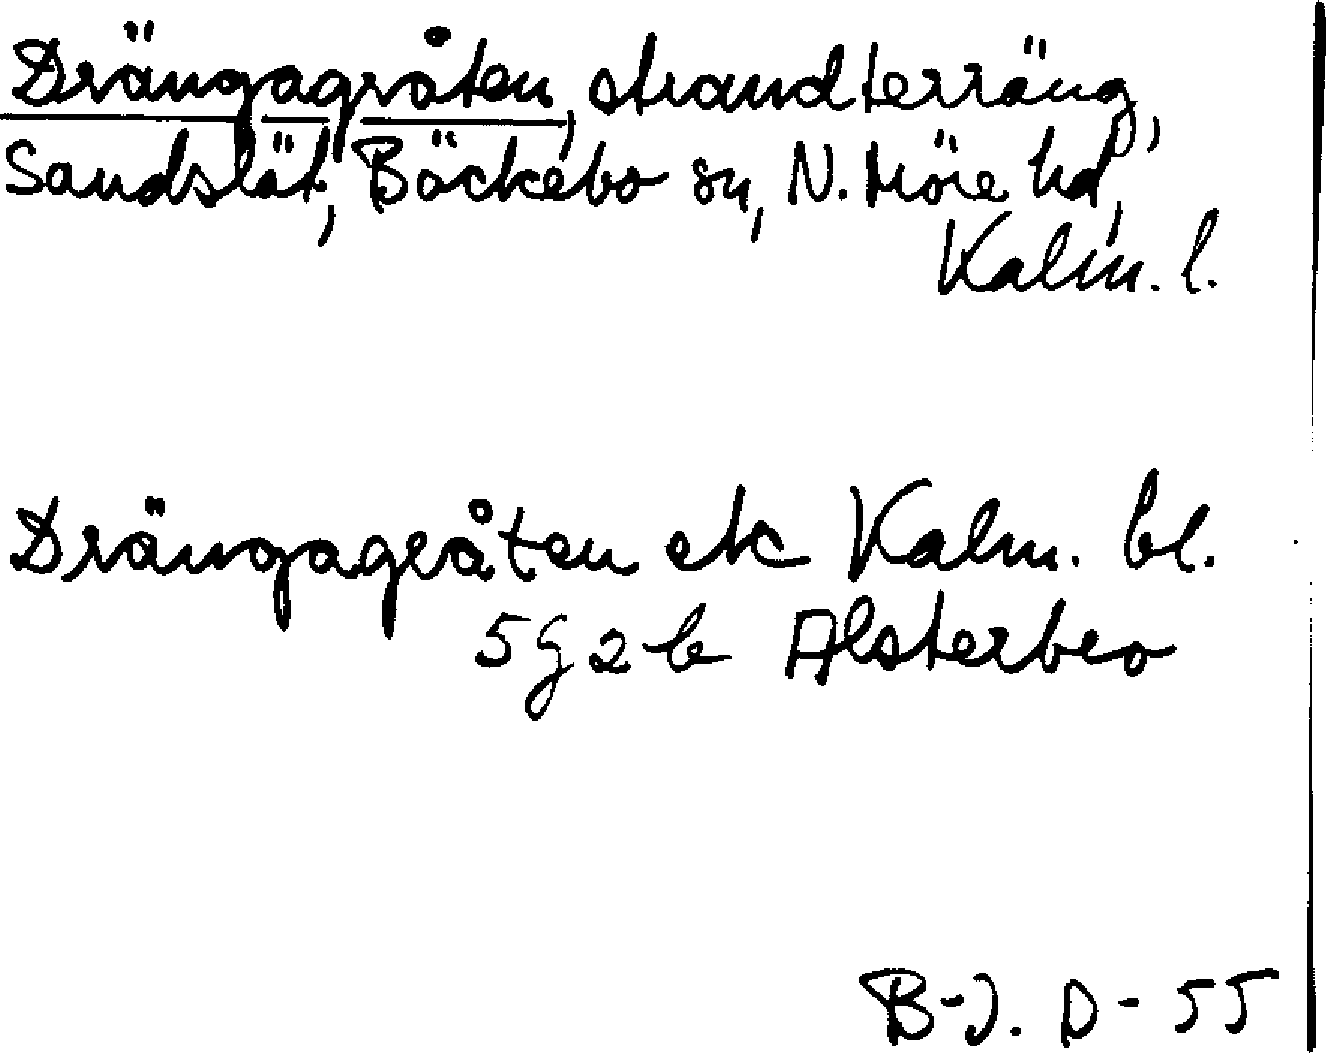 Drängagråten, strandterräng,
Sandslät, Bäckebo sn, N. Möre hd,
Kalm. l.
Drängagråten ek Kalm. bl.
5g 2 b Alsterbro
B-J. D-55